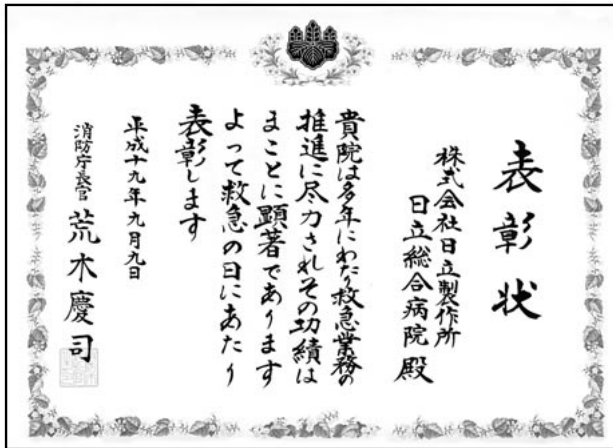 表彰状
株式会社日立製作所
日立総合病院 殿
貴院は多年にわたり救急業務の
推進に尽力されその功績は
まことに顕著であります
よって救急の日にあたり
表彰します
平成十九年九月九日
消防庁長官 荒木慶司